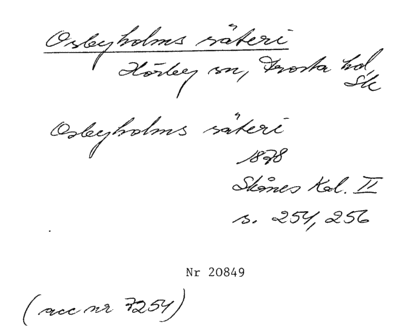 Osbyholms säteri
Hörby sn, Frosta hd,
Sk
Osbyholms säteri
1878
Skånes Kal. II
s. 254, 256
Nr 20849
(acc nr 7254)